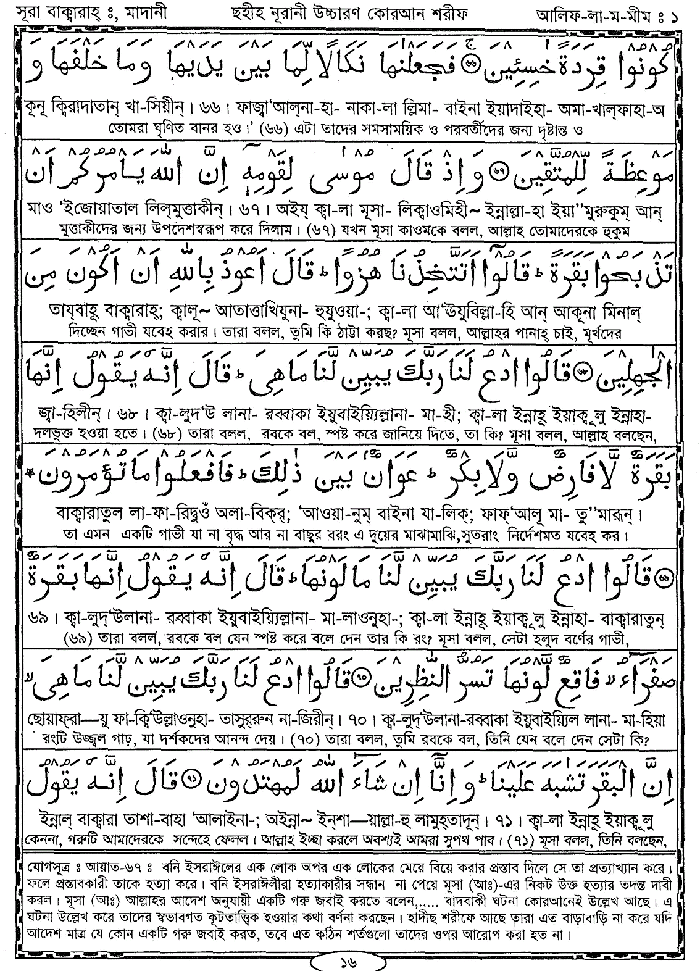 সূরা বাক্বারাহ্ ঃ, মাদানী ছহীহ নূরানী উচ্চারণ কোরআন শরীফ আলিফ-লা-ম-মীম ঃ ১
كُونُوا قِرَدَةً خٰسِئِينَ ۝ فَجَعَلْنٰهَا نَكَالًا لِّمَا بَيْنَ يَدَيْهَا وَمَا خَلْفَهَا وَ
কূনূ ক্বিরাদাতান্ খা-সিয়ীন্। ৬৬। ফাজ্বা‘আল্না-হা- নাকা-লা ল্লিমা- বাইনা ইয়াদাইহা- অমা-খাল্ফাহা-অ
তোমরা ঘৃণিত বানর হও। (৬৬) এটা তাদের সমসাময়িক ও পরবর্তীদের জন্য দৃষ্টান্ত ও
مَوْعِظَةً لِّلْمُتَّقِينَ ۝ وَاِذْ قَالَ مُوسٰى لِقَوْمِهٖٓ اِنَّ اللّٰهَ يَاْمُرُكُمْ اَنْ
মাও ‘ইজোয়াতাল লিল্মুত্তাকীন্। ৬৭। অইয্ ক্বা-লা মূসা- লিক্বাওমিহী~ ইন্নাল্লা-হা ইয়া”মুরুকুম্ আন্
মুত্তাকীদের জন্য উপদেশস্বরূপ করে দিলাম। (৬৭) যখন মূসা কাওমকে বলল, আল্লাহ তোমাদেরকে হুকুম
تَذْبَحُوا بَقَرَةً ۚ قَالُوٓا اَتَتَّخِذُنَا هُزُوًا ۚ قَالَ اَعُوذُ بِاللّٰهِ اَنْ اَكُونَ مِنَ
তায্বাহূ বাক্বারাহ্; ক্বালূ~ আতাত্তাখিযুনা- হুযুওয়া-; ক্বা-লা আ‘ঊযুবিল্লা-হি আন্ আকূনা মিনাল্
দিচ্ছেন গাভী যবেহ করার। তারা বলল, তুমি কি ঠাট্টা করছ? মূসা বলল, আল্লাহর পানাহ্ চাই, মূর্খদের
الْجٰهِلِينَ ۝ قَالُوا ادْعُ لَنَا رَبَّكَ يُبَيِّنْ لَّنَا مَا هِىَ ۚ قَالَ اِنَّهٗ يَقُولُ اِنَّهَا
জ্বা-হিলীন্। ৬৮। ক্বা-লুদ‘উ লানা- রব্বাকা ইয়ুবাইয়্যিল্লানা- মা-হী; ক্বা-লা ইন্নাহূ ইয়াক্বূলু ইন্নাহা-
দলভুক্ত হওয়া হতে। (৬৮) তারা বলল, রবকে বল, স্পষ্ট করে জানিয়ে দিতে, তা কি? মূসা বলল, আল্লাহ বলছেন,
بَقَرَةٌ لَّا فَارِضٌ وَّلَا بِكْرٌ ۚ عَوَانٌ بَيْنَ ذٰلِكَ ۚ فَافْعَلُوا مَا تُؤْمَرُونَ
বাক্বারাতুল লা-ফা-রিদ্বুওঁ অলা-বিক্র্; ‘আওয়া-নুম্ বাইনা যা-লিক্; ফাফ্‘আলূ মা- তু”মারূন্।
তা এমন একটি গাভী যা না বৃদ্ধ আর না বাছুর বরং এ দুয়ের মাঝামাঝি, সুতরাং নির্দেশমত যবেহ কর।
۝ قَالُوا ادْعُ لَنَا رَبَّكَ يُبَيِّنْ لَّنَا مَا لَوْنُهَا ۚ قَالَ اِنَّهٗ يَقُولُ اِنَّهَا بَقَرَةٌ
৬৯। ক্বা-লুদ‘উলানা- রব্বাকা ইয়ুবাইয়্যিল্লানা- মা-লাওনুহা-; ক্বা-লা ইন্নাহূ ইয়াক্বূলু ইন্নাহা- বাক্বারাতুন্
(৬৯) তারা বলল, রবকে বল যেন স্পষ্ট করে বলে দেন তার কি রং? মূসা বলল, সেটা হলুদ বর্ণের গাভী,
صَفْرَآءُ ۙ فَاقِعٌ لَّوْنُهَا تَسُرُّ النّٰظِرِينَ ۝ قَالُوا ادْعُ لَنَا رَبَّكَ يُبَيِّنْ لَّنَا مَا هِىَ ۙ
ছোয়াফ্রা—য়ু ফা-ক্বি‘উল্লাওনুহা- তাসুর্রুন্ না-জিরীন্। ৭০। ক্বা-লুদ‘উলানা-রব্বাকা ইয়ুবাইয়্যিল লানা- মা-হিয়া
রংটি উজ্জ্বল গাঢ়, যা দর্শকদের আনন্দ দেয়। (৭০) তারা বলল, তুমি রবকে বল, তিনি যেন বলে দেন সেটা কি?
اِنَّ الْبَقَرَ تَشٰبَهَ عَلَيْنَا ۚ وَاِنَّآ اِنْ شَآءَ اللّٰهُ لَمُهْتَدُونَ ۝ قَالَ اِنَّهٗ يَقُولُ
ইন্নাল্ বাক্বারা তাশা-বাহা ‘আলাইনা-; অইন্না~ ইন্শা—য়াল্লা-হু লামুহ্তাদূন্। ৭১। ক্বা-লা ইন্নাহূ ইয়াক্বূলু
কেননা, গরুটি আমাদেরকে সন্দেহে ফেলল। আল্লাহ ইচ্ছা করলে অবশ্যই আমরা সুপথ পাব। (৭১) মূসা বলল, তিনি বলছেন,
যোগসূত্র ঃ আয়াত-৬৭ ঃ বনি ইসরাঈলের এক লোক অপর এক লোকের মেয়ে বিয়ে করার প্রস্তাব দিলে সে তা প্রত্যাখ্যান করে।
ফলে প্রস্তাবকারী তাকে হত্যা করে। বনি ইসরাঈলীরা হত্যাকারীর সন্ধান না পেয়ে মূসা (আঃ)-এর নিকট উক্ত হত্যার তদন্ত দাবী
করল। মূসা (আঃ) আল্লাহর আদেশ অনুযায়ী একটি গরু জবাই করতে বলেন,.... বাদবাকী ঘটনা কোরআনেই উল্লেখ আছে। এ
ঘটনা উল্লেখ করে তাদের স্বভাবগত কূটতার্কিক হওয়ার কথা বর্ণনা করছেন। হাদীছ শরীফে আছে তারা এত বাড়াবাড়ি না করে যদি
আদেশ মাত্র যে কোন একটি গরু জবাই করত, তবে এত কঠিন শর্তগুলো তাদের ওপর আরোপ করা হত না।
১৬